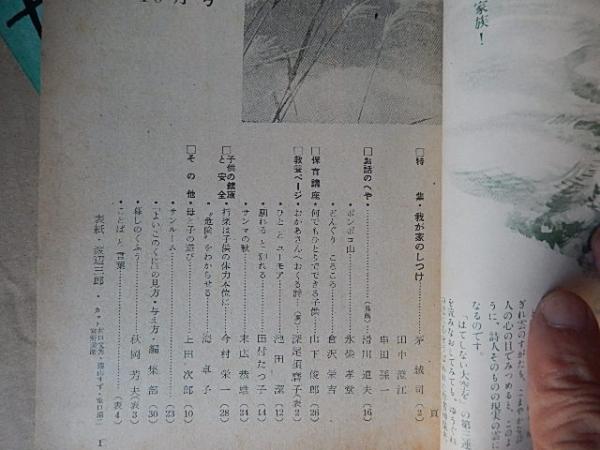 10月号
家族！
□特集・我が家のしつけ……茅誠司（2）
田中澄江
串田孫一
□お話のへや・……（長篇）滑川道夫（16）
・ポンポコ山……永柴孝堂
・どんぐりころころ……倉沢栄吉
□保育講座・何でもひとりでできる子供……山下俊郎（26）
□教養ページ・おかあさんへおくる詩…（裏）深尾須磨子（表2）
・ひとことユーモア……池田潔（12）
・馴れると狎れる……田村たつ子（14）
・サンマの秋……末広恭雄（24）
□子供の健康と安全・行楽は子供の体力本位に……今村栄一（28）
・"危険"をわからせる……海卓子
□その他・母と子の遊び……上田次郎（10）
・サンルーム……（23）
・「よいこのくに」の見方・与え方・編集部（30）
・暮しのくふう……秋岡芳夫（表3）
・ことばと言葉……（表4）
表紙・渡辺三郎
1
頁
ぎれ雲のすがたも、こまやかな詩
人の心の目でみつめると、このよ
うに、詩人そのものの現実の雲に
なるのです。
「はてしない大空を」の第三連
を読みなおしてみても、ゆうぐれ